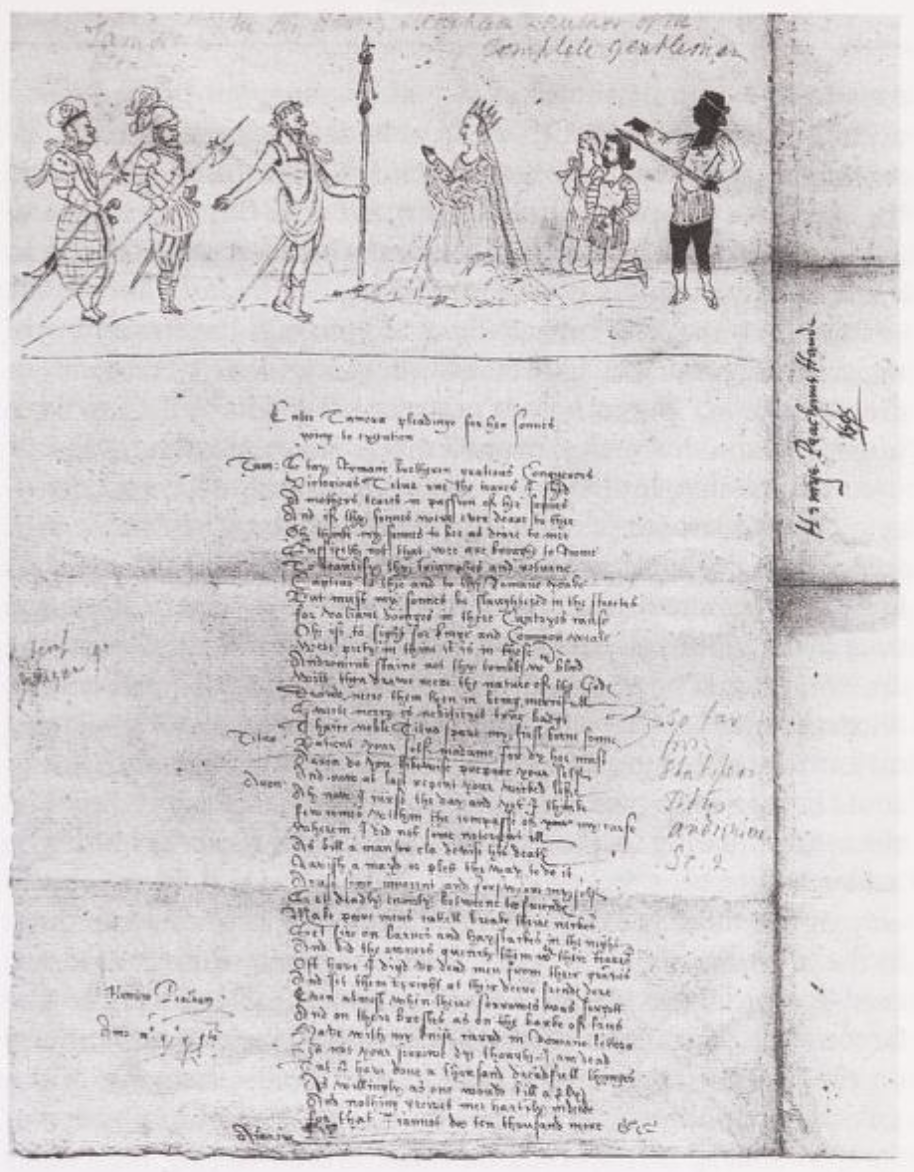 Complete Gentleman
Enter Tamora pleadinge for her sonnes
going to execution
Tam: Stay Romane bretheren gratious Conquerors
Victorious Titus rue the teares I shed
A mothers teares in passion of her sonnes
And if thy sonnes were ever deare to thee
Oh thinke my sonnes to bee as deare to mee
Suffizeth not that wee are brought to Roome
To beautify thy triumphes and returne
Captiue to thee and to thy Romane yoake
But must my sonnes be slaughtered in the streetes
for valiant doinges in there Cuntryes cause
Oh if to fight for kinge and Common weale
Were piety in thine it is in these
Andronicus staine not thy tombe wth blod
Wilt thou drawe neere the nature of the Godes
Drawe neere them then in being mercifull
Sweete mercy is nobilityes true badge
Thrice noble Titus spare my first borne sonne
Titus: Patient your self madame for dy hee must
Aaron do you likewise prepare your self
And now at last repent your wicked life
Aron: Ah now I curse the day and yet I thinke
few comes within the compasse of my curse
Wherein I did not some notorious ill
As kill a man or els devise his death
Ravish a mayd or plott the way to do it
Acuse some innocent and forsweare myself
Set deadly enmity betweene two freendes
Make poore mens cattell breake theire neckes
Set fire on barnes and haystackes in the night
And bid the owners quench them wth their teares
Oft have I digd vp dead men from their graves
And set them vpright at their deere frendes dore
Even almost when theire sorrowes was forgott
And on their brestes as on the barke of trees
Have with my knife carvd in Romane letters
Lett not your sorrowe dy though I am dead
Tut I have done a thousand dreadfull thinges
As willingly as one would kill a fly
And nothing greives mee hartily indeede
for that I cannot doo ten thousand more &c
Alarbus
so far
from
Titus
Andronicus
Sc. 2
Henricus Peacham
Anno
Henrye Peachams Hande
1595